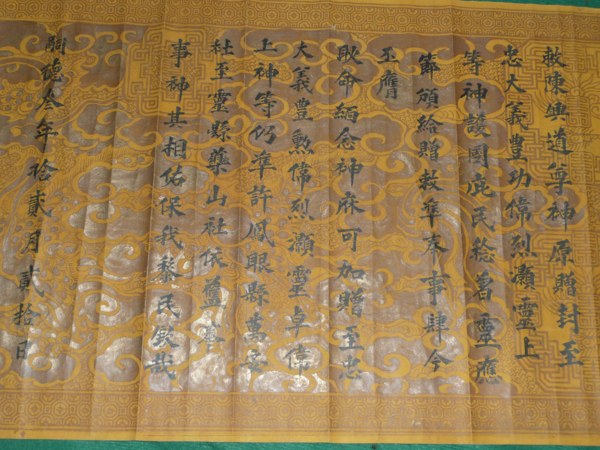 敕陳興道尊神原贈封至
忠大義豊功偉烈灝靈上
等神護國庇民稔著靈應
節頒給贈敕準奉事肆今
丕膺
耿命緬念神庥可加贈至忠
大義豊勲偉烈灝靈卓偉
上神等仍準許鳳眼縣萬安
社至靈縣藥山社依舊奉
事神其相佑保我黎民欽哉
嗣德叁年拾貳月貳拾日